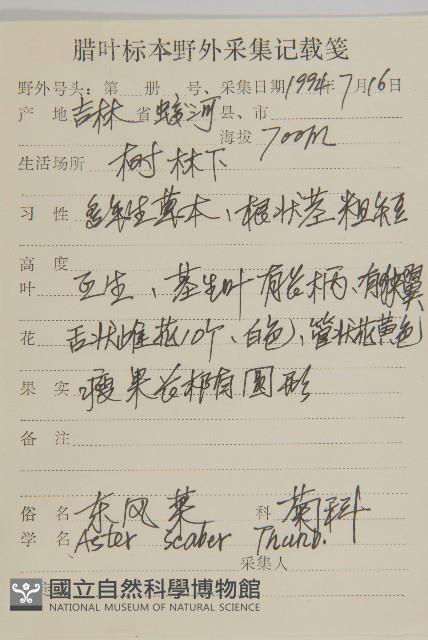 腊叶标本野外采集记载笺
野外号头：第 册 号、采集日期1994年7月16日
产 地 吉林 省 蛟河 县、市
海拔 700m
生活场所 树林下
习 性 多年生草本、根状茎粗短
高 度
叶 互生、基生叶有长柄、有狭翼
花 舌状雌花10个、白色、管状花黄色
果 实 瘦果 圆形
备 注
俗 名 东风菜 科 菊科
学 名 Aster scaber Thunb.
采集人
國立自然科學博物館
NATIONAL MUSEUM OF NATURAL SCIENCE